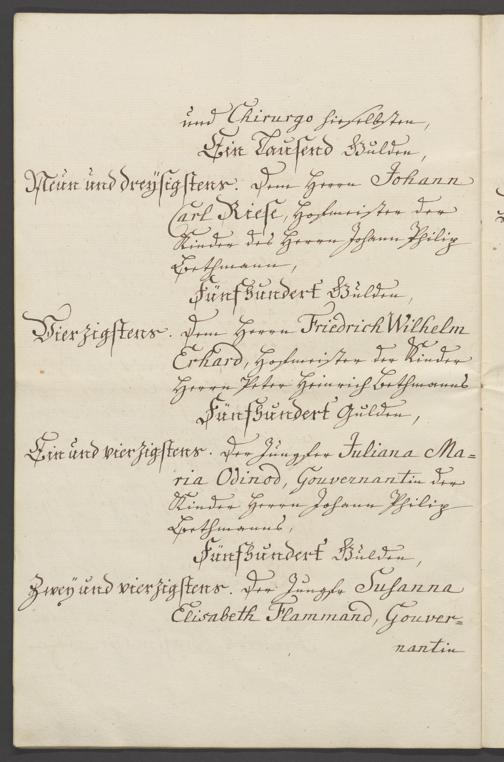 und Chirurgo hieselbsten,
Ein Tausend Gulden,
Neün und dreÿsigstens. Dem Herrn Johann
Carl Riese, Hofmeister der
Kinder des Herrn Johann Philip
Bethmann,
Fünfhundert Gulden,
Vierzigstens. Dem Herrn Friedrich Wilhelm
Erhard, Hofmeister der Kinder
Herrn Peter Heinrich Bethmanns
Fünfhundert Gulden,
Ein und vierzigstens. Der Jungfer Juliana Ma=
ria Odinod, Gouvernantin der
Kinder Herrn Johann Philip
Bethmanns,
Fünfhundert Gulden,
Zweÿ und vierzigstens. Der Jungfr Susanna
Elisabeth Flammand, Gouver=
nantin